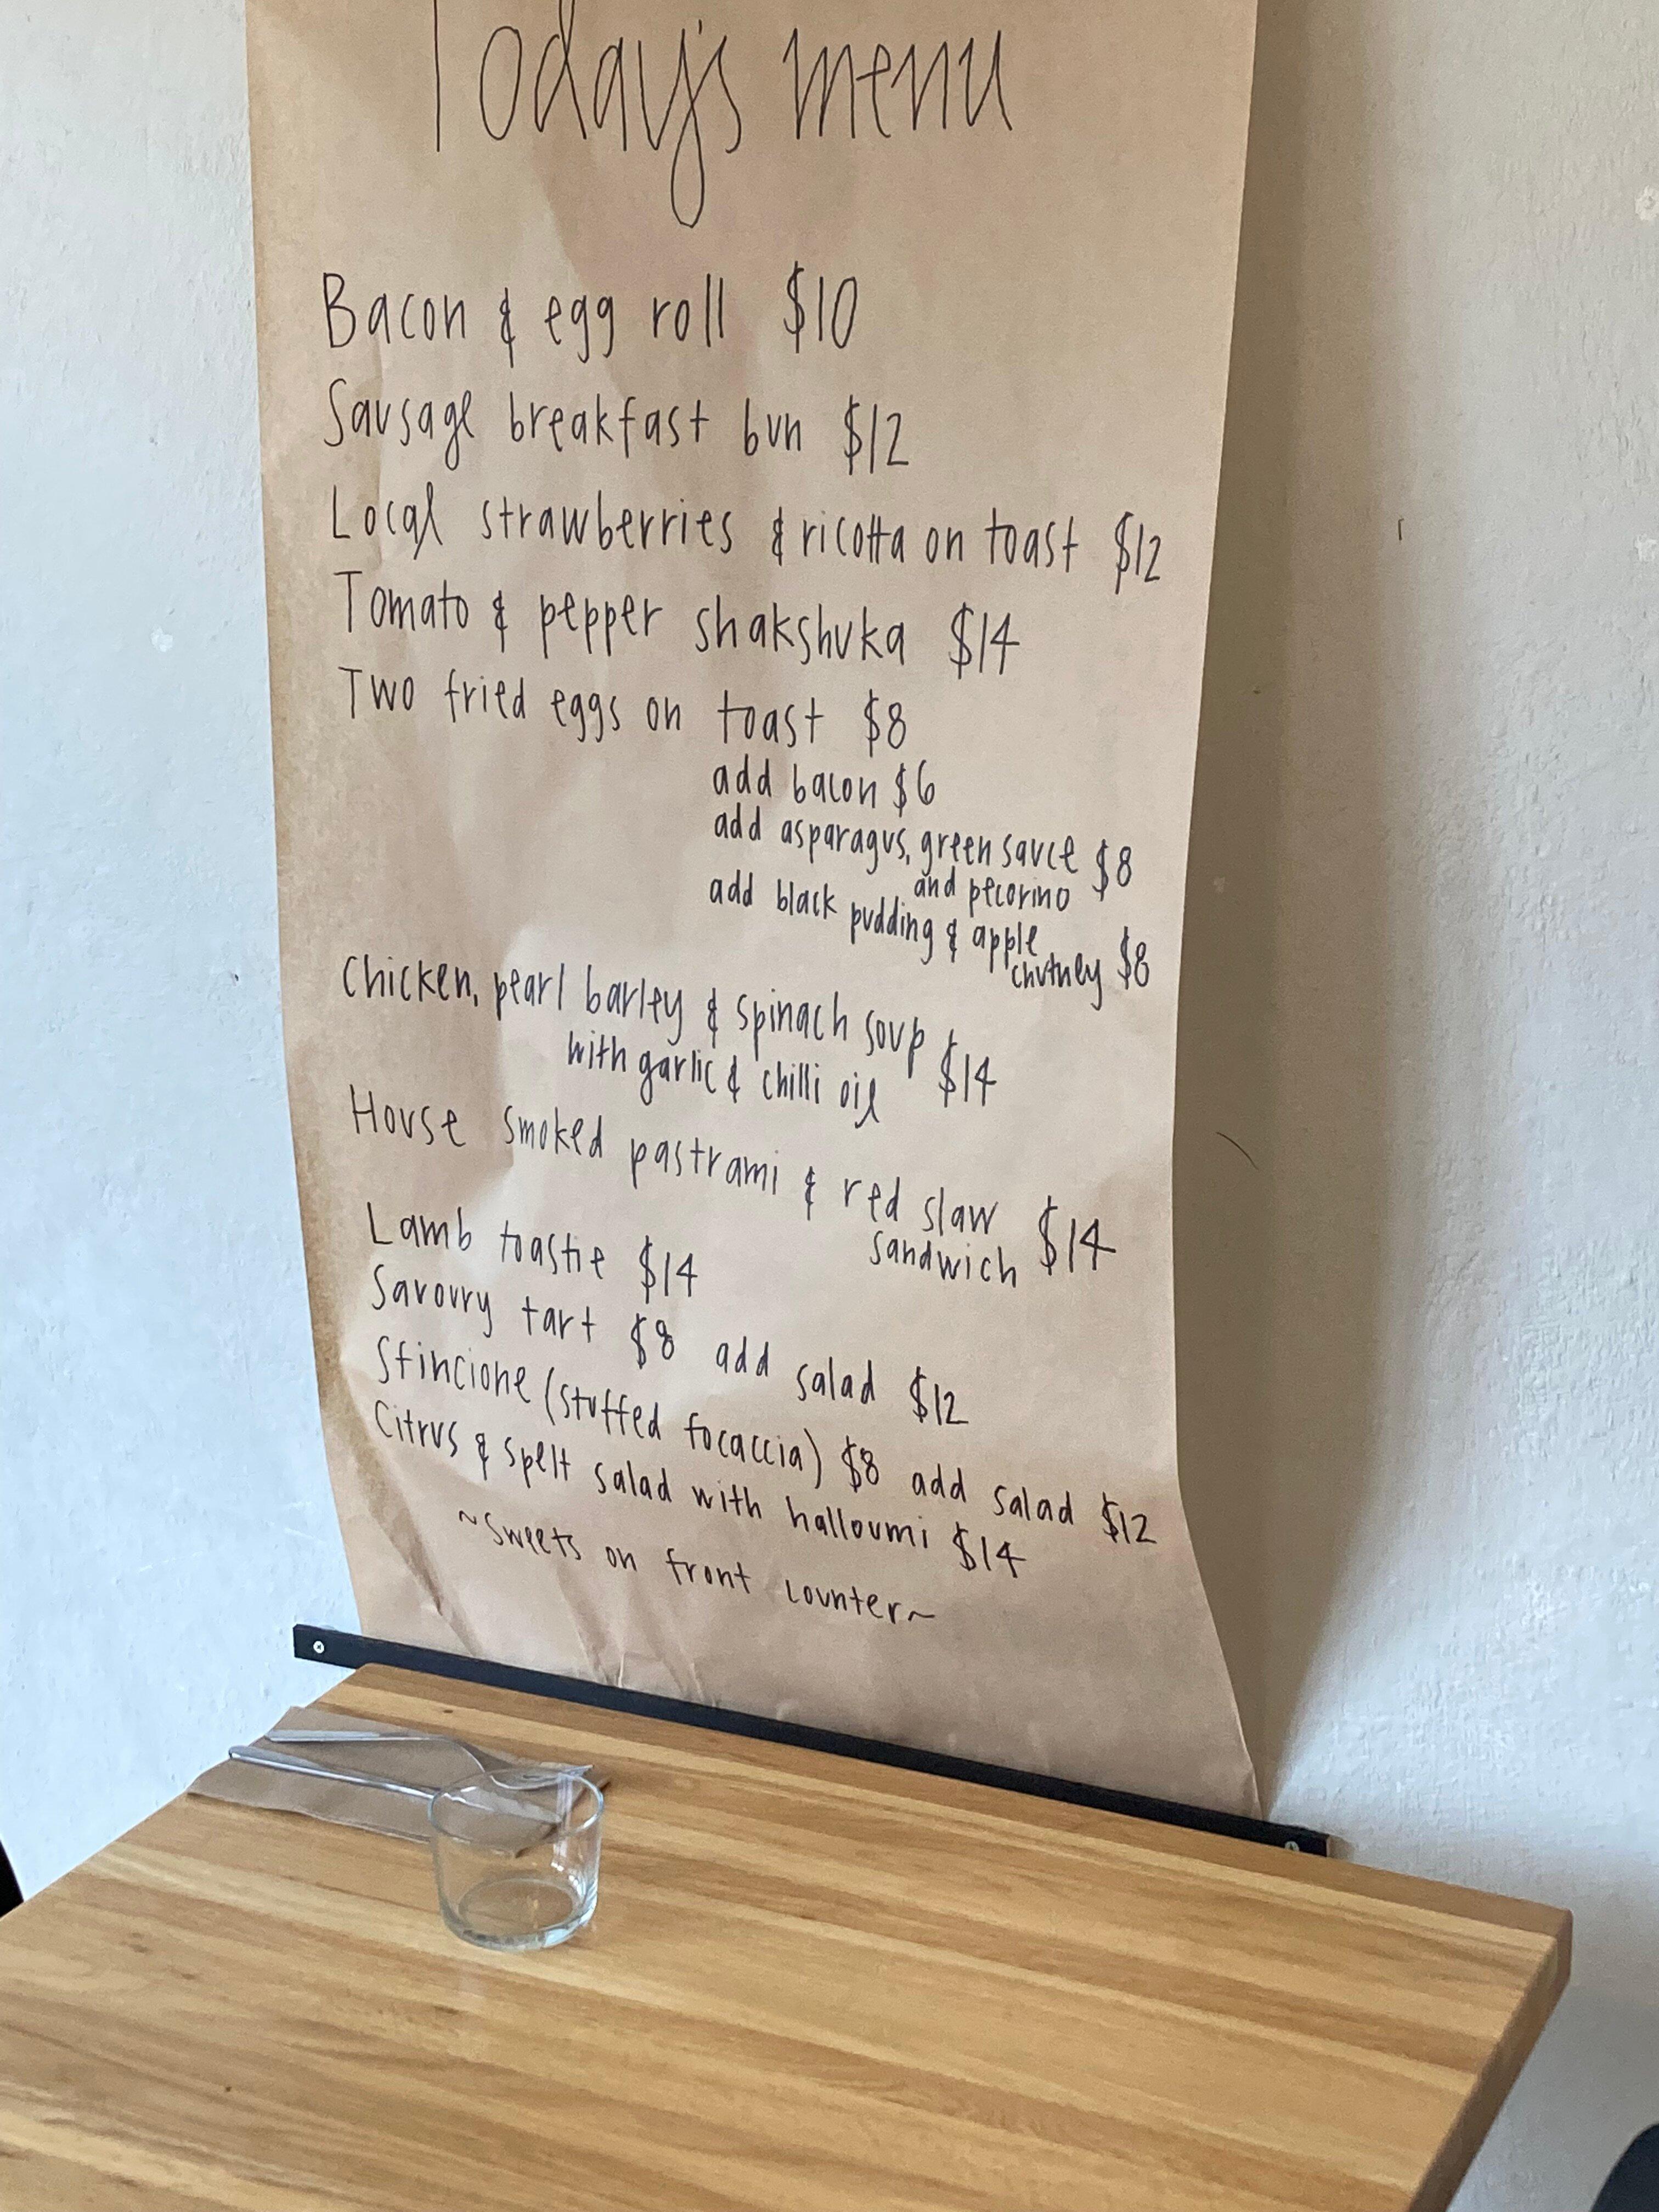 Today's menu
Bacon & egg roll $10
Sausage breakfast bun $12
Local strawberries & ricotta on toast $12
Tomato & pepper shakshuka $14
Two fried eggs on toast $8
add bacon $6
add asparagus, green sauce $8
and pecorino
add black pudding & apple
chutney $8
Chicken, pearl barley & spinach soup
with garlic & chilli oil $14
House smoked pastrami & red slaw
sandwich $14
Lamb toastie $14
Savoury tart $8 add salad $12
Sfincione (stuffed focaccia) $8 add salad $12
Citrus & spelt salad with halloumi $14
~sweets on front counter~